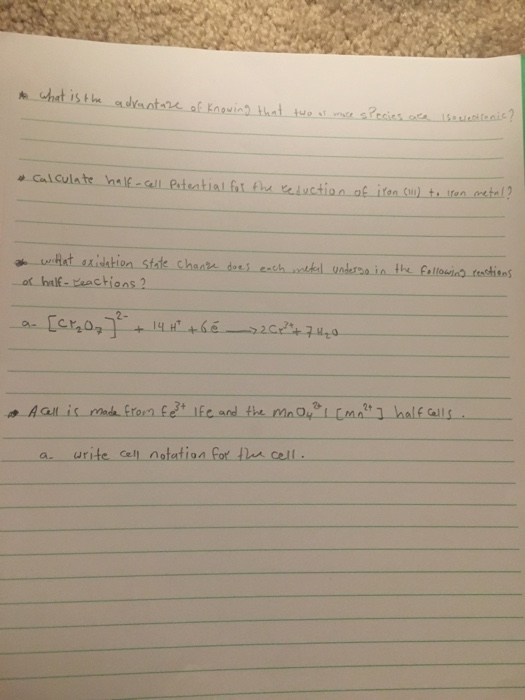 * What is the advantage of knowing that two or more species are isoelectronic?
* Calculate half-cell Potential for the reduction of iron (III) to iron metal?
* what oxidation state change does each metal undergo in the following reactions
or half-reactions?
a- [Cr₂O₇]²⁻ + 14 H⁺ + 6 é ⟶ 2 Cr³⁺ + 7 H₂O
* A cell is made from Fe³⁺ | Fe and the MnO₄ | [Mn²⁺] half cells.
a. write cell notation for the cell.